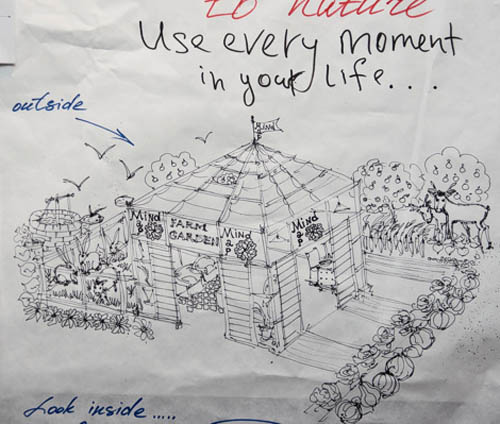 to nature
Use every moment
in your life....
outside
Mind
Mind
FARM
GARDEN
Mind
Mind
Look inside.....